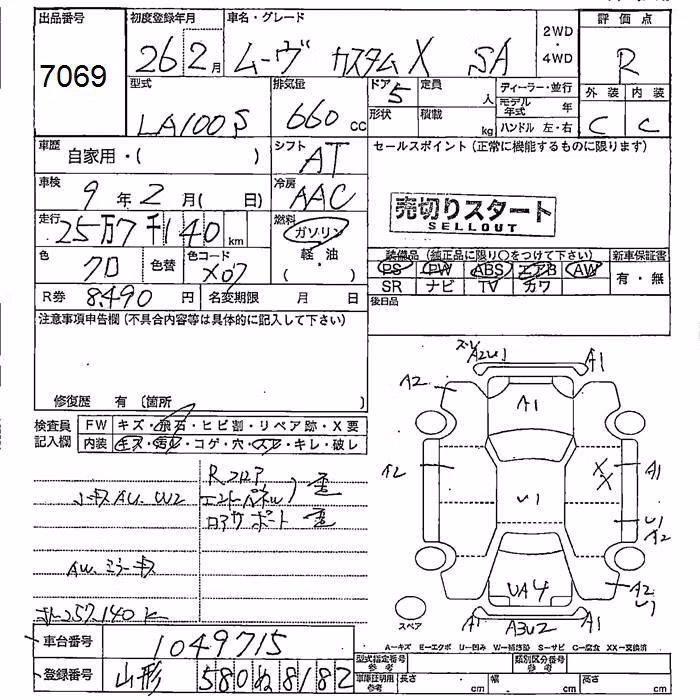 出品番号
7069
初度登録年月
26 2月
車名・グレード
ムーヴ カスタム X SA
2WD
・
4WD
評価点
R
外装 内装
C C
型式
LA100S
排気量
660cc
ドア 5
形状
定員 人
積載 kg
ディーラー・並行
モデル年式 年
ハンドル 左・右
車歴
自家用・( )
シフト
AT
セールスポイント(正常に機能するものに限ります)
車検
9年2月( 日)
冷房
AAC
売切りスタート
SELLOUT
走行
25万7千140km
燃料
ガソリン
軽・油
( )
色
クロ
色替
色コード
X07
装備品(純正品に限り○をつけて下さい)
PS PW ABS エアB AW
SR ナビ TV カワ
新車保証書
有・無
R券 8,490円
名変期限 月 日
後日品
注意事項申告欄(不具合内容等は具体的に記入して下さい)
修復歴 有(箇所 )
検査員記入欄
FW キズ・飛石・ヒビ割・リペア跡・X要
内装 キズ・汚れ・コゲ・穴・スレ・キレ・破レ
Rフロア
エンドパネル 歪
コアサポート 歪
AU. W2
AW. ミラーキズ
257.140K
A2U1
A1
A2
A1
A2
XX
A1
U1
U1
A2
A2
U1
UA4
A1
A3U2
A1
スペア
A=キズ E=エクボ U=凹み W=補修跡 S=サビ C=腐食 XX=交換済
車台番号
1049715
登録番号
山形 580 ぬ 8182
型式指定番号
参考
類別区分番号
参考
車庫証明用
参考
長さ cm
幅 cm
高さ cm